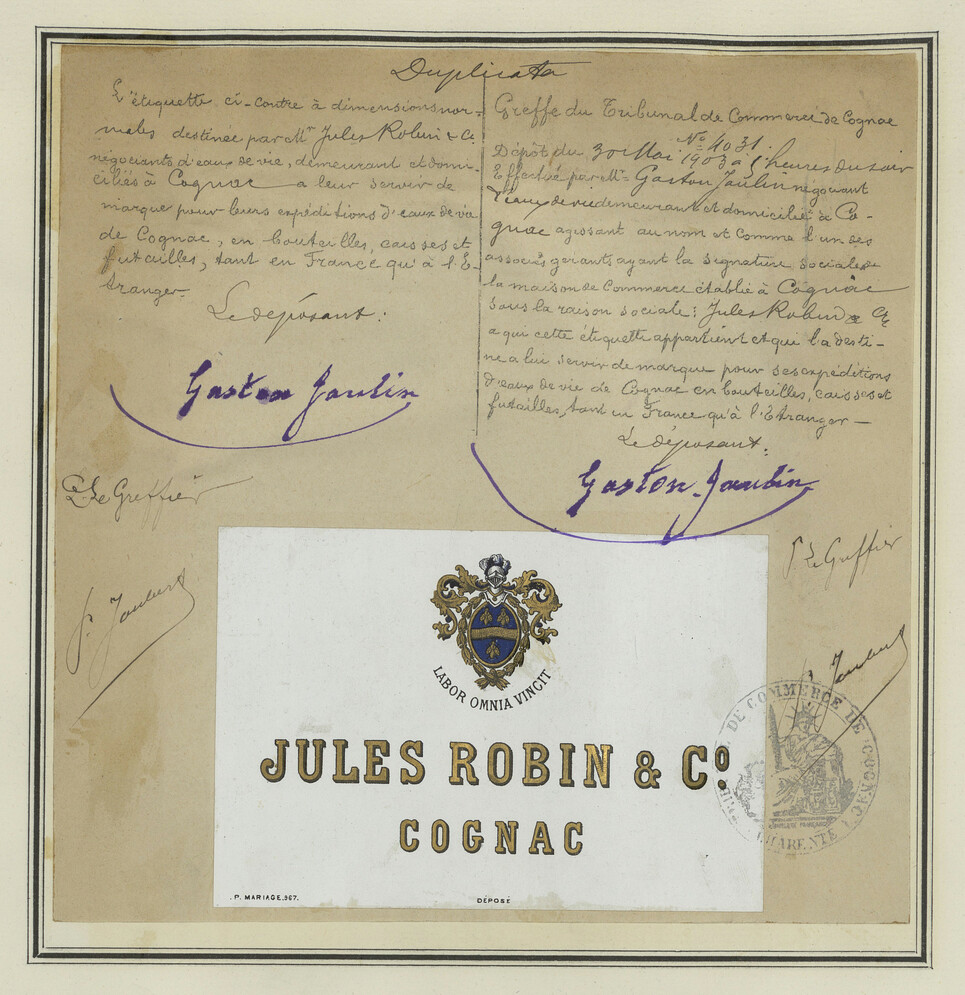 Duplicata
L'étiquette ci-contre à dimensions nor-
males destinée par Mr Jules Robin & Cie
négociants d'eaux de vie, demeurant et domi-
ciliés à Cognac a leur servir de
marque pour leurs expéditions d'eaux de vie
de Cognac, en bouteilles, caisses et
futailles, tant en France qu'à l'E-
tranger.
Le déposant:
Gaston Jaulin
P. Le Greffier
P. Joubert
Greffe du Tribunal de Commerce de Cognac
No 4031.
Dépôt du 30 Mai 1903 à 1 heures du soir
Effectué par Mr Gaston Jaulin négociant
d'eaux de vie demeurant et domicilié à Co-
gnac agissant au nom et comme l'un des
associés gerants ayant la signature sociale de
la maison de Commerce établie à Cognac
sous la raison sociale: Jules Robin & Cie
a qui cette étiquette appartient et que l'a desti-
né a lui servir de marque pour ses expéditions
d'eaux de vie de Cognac en bouteilles, caisses et
futailles, tant en France qu'à l'Etranger —
Le déposant:
Gaston Jaulin
P. Le Greffier
P. Joubert
LABOR OMNIA VINCIT
JULES ROBIN & Co.
COGNAC
P. MARIAGE.967.
DÉPOSÉ
DE COMMERCE DE COGNAC
CHARENTE